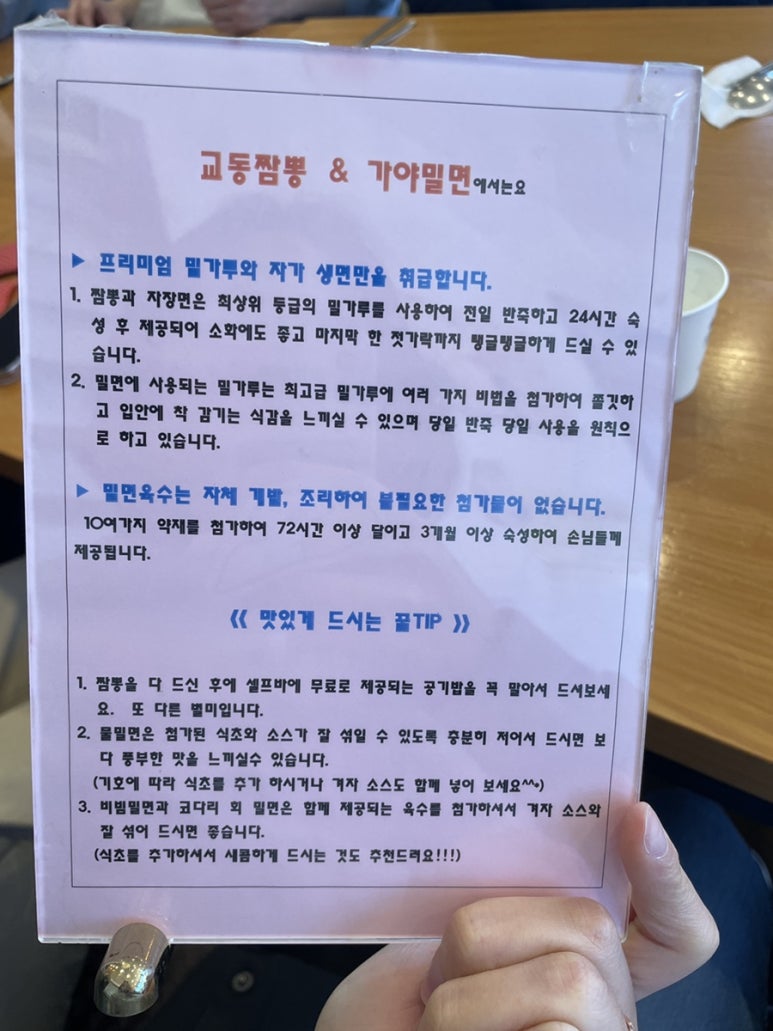 교동짬뽕 & 가야밀면에서는요
▶ 프리미엄 밀가루와 자가 생면만을 취급합니다.
1. 짬뽕과 자장면은 최상위 등급의 밀가루를 사용하여 전일 반죽하고 24시간 숙
성 후 제공되어 소화에도 좋고 마지막 한 젓가락까지 탱글탱글하게 드실 수 있
습니다.
2. 밀면에 사용되는 밀가루는 최고급 밀가루에 여러 가지 비법을 첨가하여 쫄깃하
고 입안에 착 감기는 식감을 느끼실 수 있으며 당일 반죽 당일 사용을 원칙으
로 하고 있습니다.
▶ 밀면육수는 자체 개발, 조리하여 불필요한 첨가물이 없습니다.
10여가지 약재를 첨가하여 72시간 이상 달이고 3개월 이상 숙성하여 손님들께
제공됩니다.
《 맛있게 드시는 꿀TIP 》
1. 짬뽕을 다 드신 후에 셀프바에 무료로 제공되는 공기밥을 꼭 말아서 드셔보세
요. 또 다른 별미입니다.
2. 물밀면은 첨가된 식초와 소스가 잘 섞일 수 있도록 충분히 저어서 드시면 보
다 풍부한 맛을 느끼실수 있습니다.
(기호에 따라 식초를 추가 하시거나 겨자 소스도 함께 넣어 보세요^^*)
3. 비빔밀면과 코다리 회 밀면은 함께 제공되는 육수를 첨가하셔서 겨자 소스와
잘 섞어 드시면 좋습니다.
(식초를 추가하셔서 새콤하게 드시는 것도 추천드려요!!!)